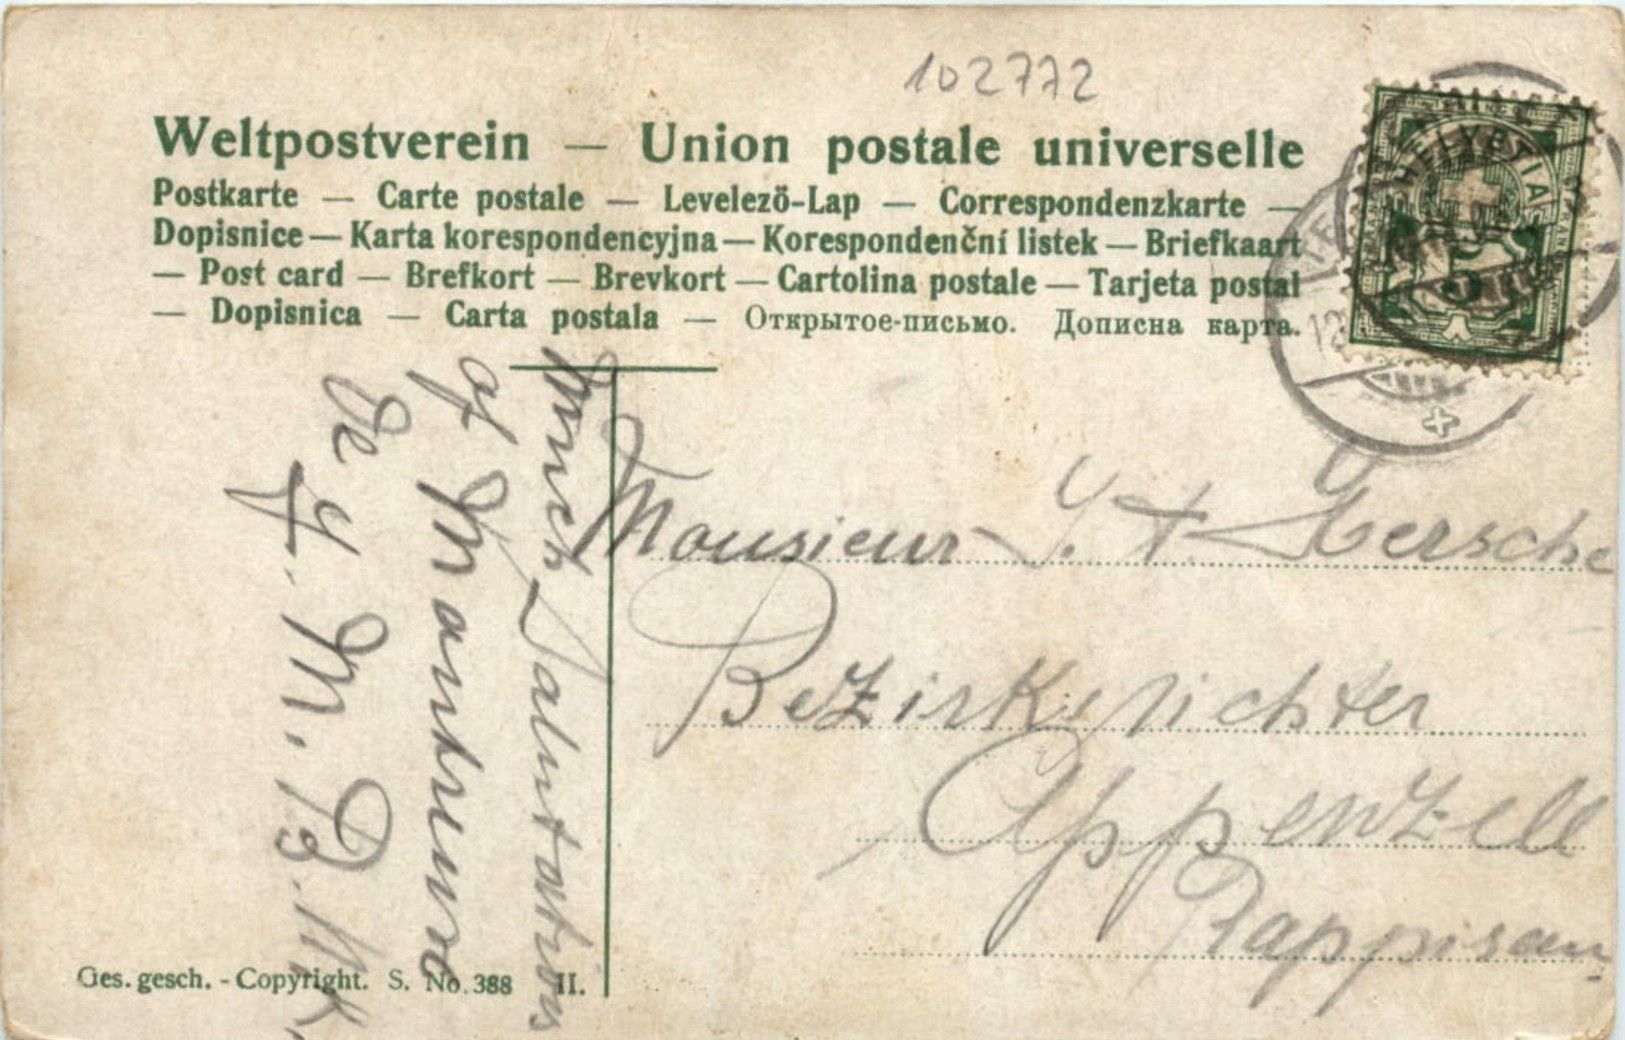 102772
Weltpostverein — Union postale universelle
Postkarte — Carte postale — Levelező-Lap — Correspondenzkarte —
Dopisnice — Karta korespondencyjna — Korespondenční listek — Briefkaart
— Post card — Brefkort — Brevkort — Cartolina postale — Tarjeta postal
— Dopisnica — Carta postala — Открытое-письмо. Дописна карта.
HELVETIA
5
Monsieur J. A.
Bezirksrichter
Appenzell
much Salutations
of
de
Ges. gesch. - Copyright. S. No. 388 II.